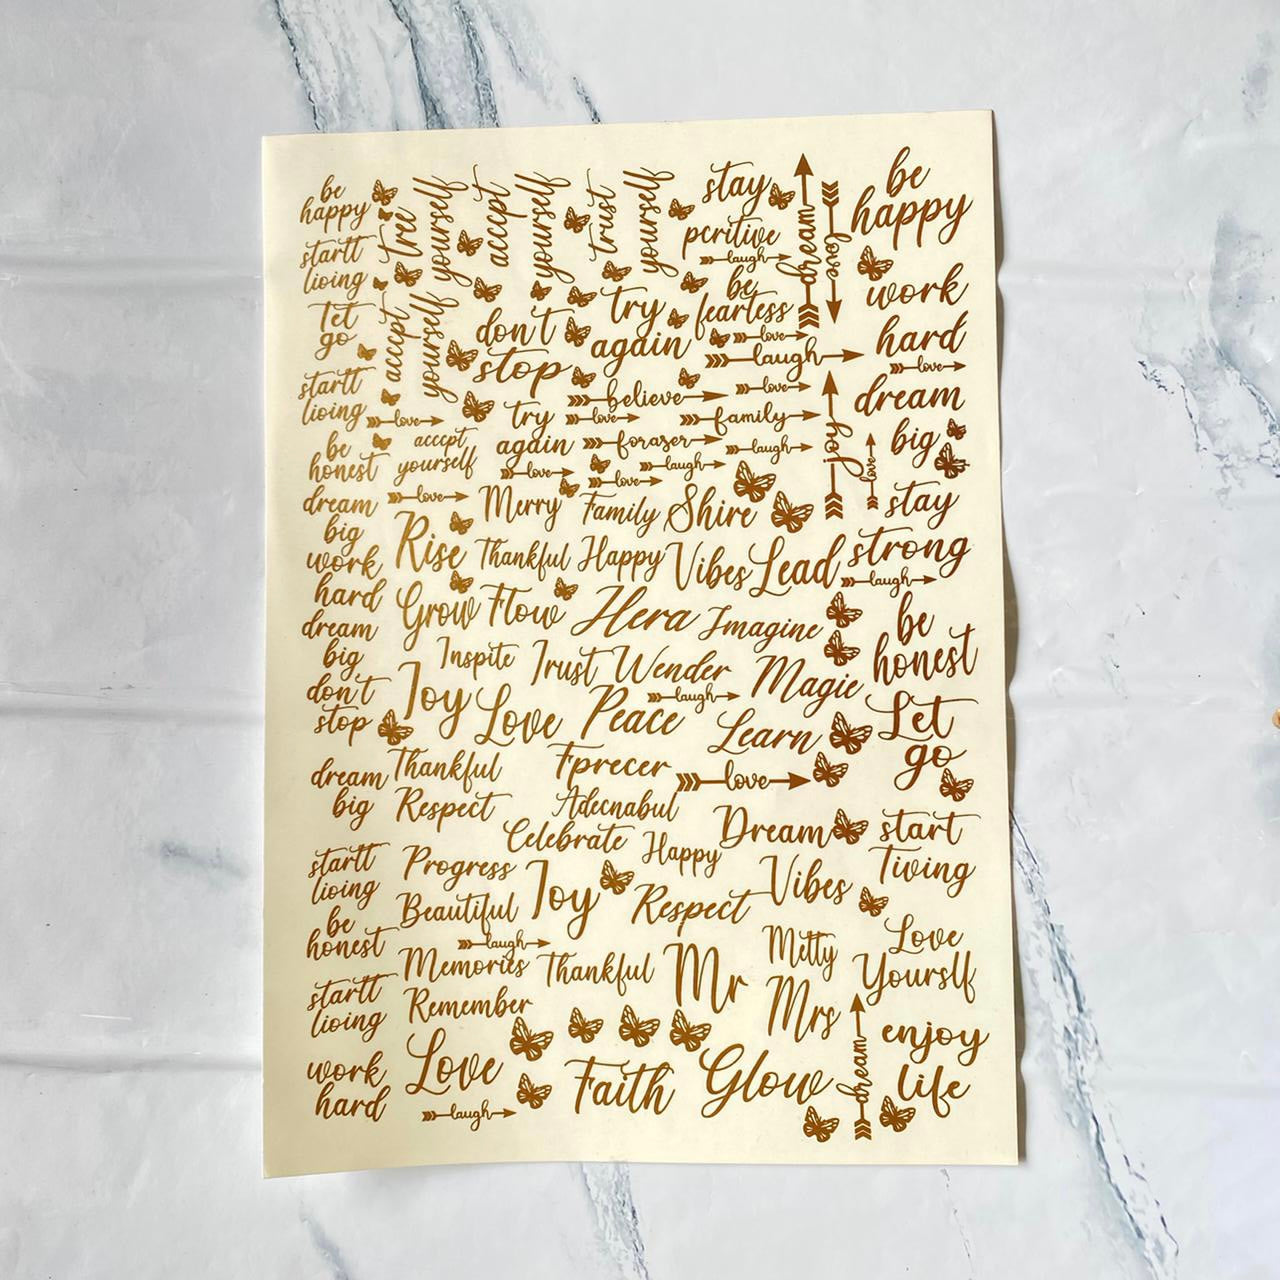 be
happy
startt
lioing
let
go
startt
lioing
be
honest
dream
big
work
hard
dream
big
don't
stop
dream
big
startt
lioing
be
honest
startt
lioing
work
hard
tree
yourself
acccpt
yourself
trust
yourself
acccpt
yourself
stay
pcritive
laugh
be
fearless
love
laugh
dream
love
don't
stop
try
again
believe
love
love
try
again
love
family
acccpt
yourself
forazer
laugh
love
laugh
love
love
joy
love
Merry Family Shire
Rise Thankful Happy Vibes Lead
Grow Flow Hera Imagine
Inspite Trust Wender
Magie
Joy Love Peace
laugh
Learn
Thankful Fprecer
love
Respect Adecnabul
Celebrate Happy Dream
Progress Joy Vibes
Beautiful Respect
laugh
Memories Thankful Mr
Mrs
Remember
Love
laugh
Faith Glow
dream
be
happy
work
hard
love
dream
big
stay
strong
laugh
be
honest
Let
go
start
Tiving
Love
Yourslf
enjoy
life